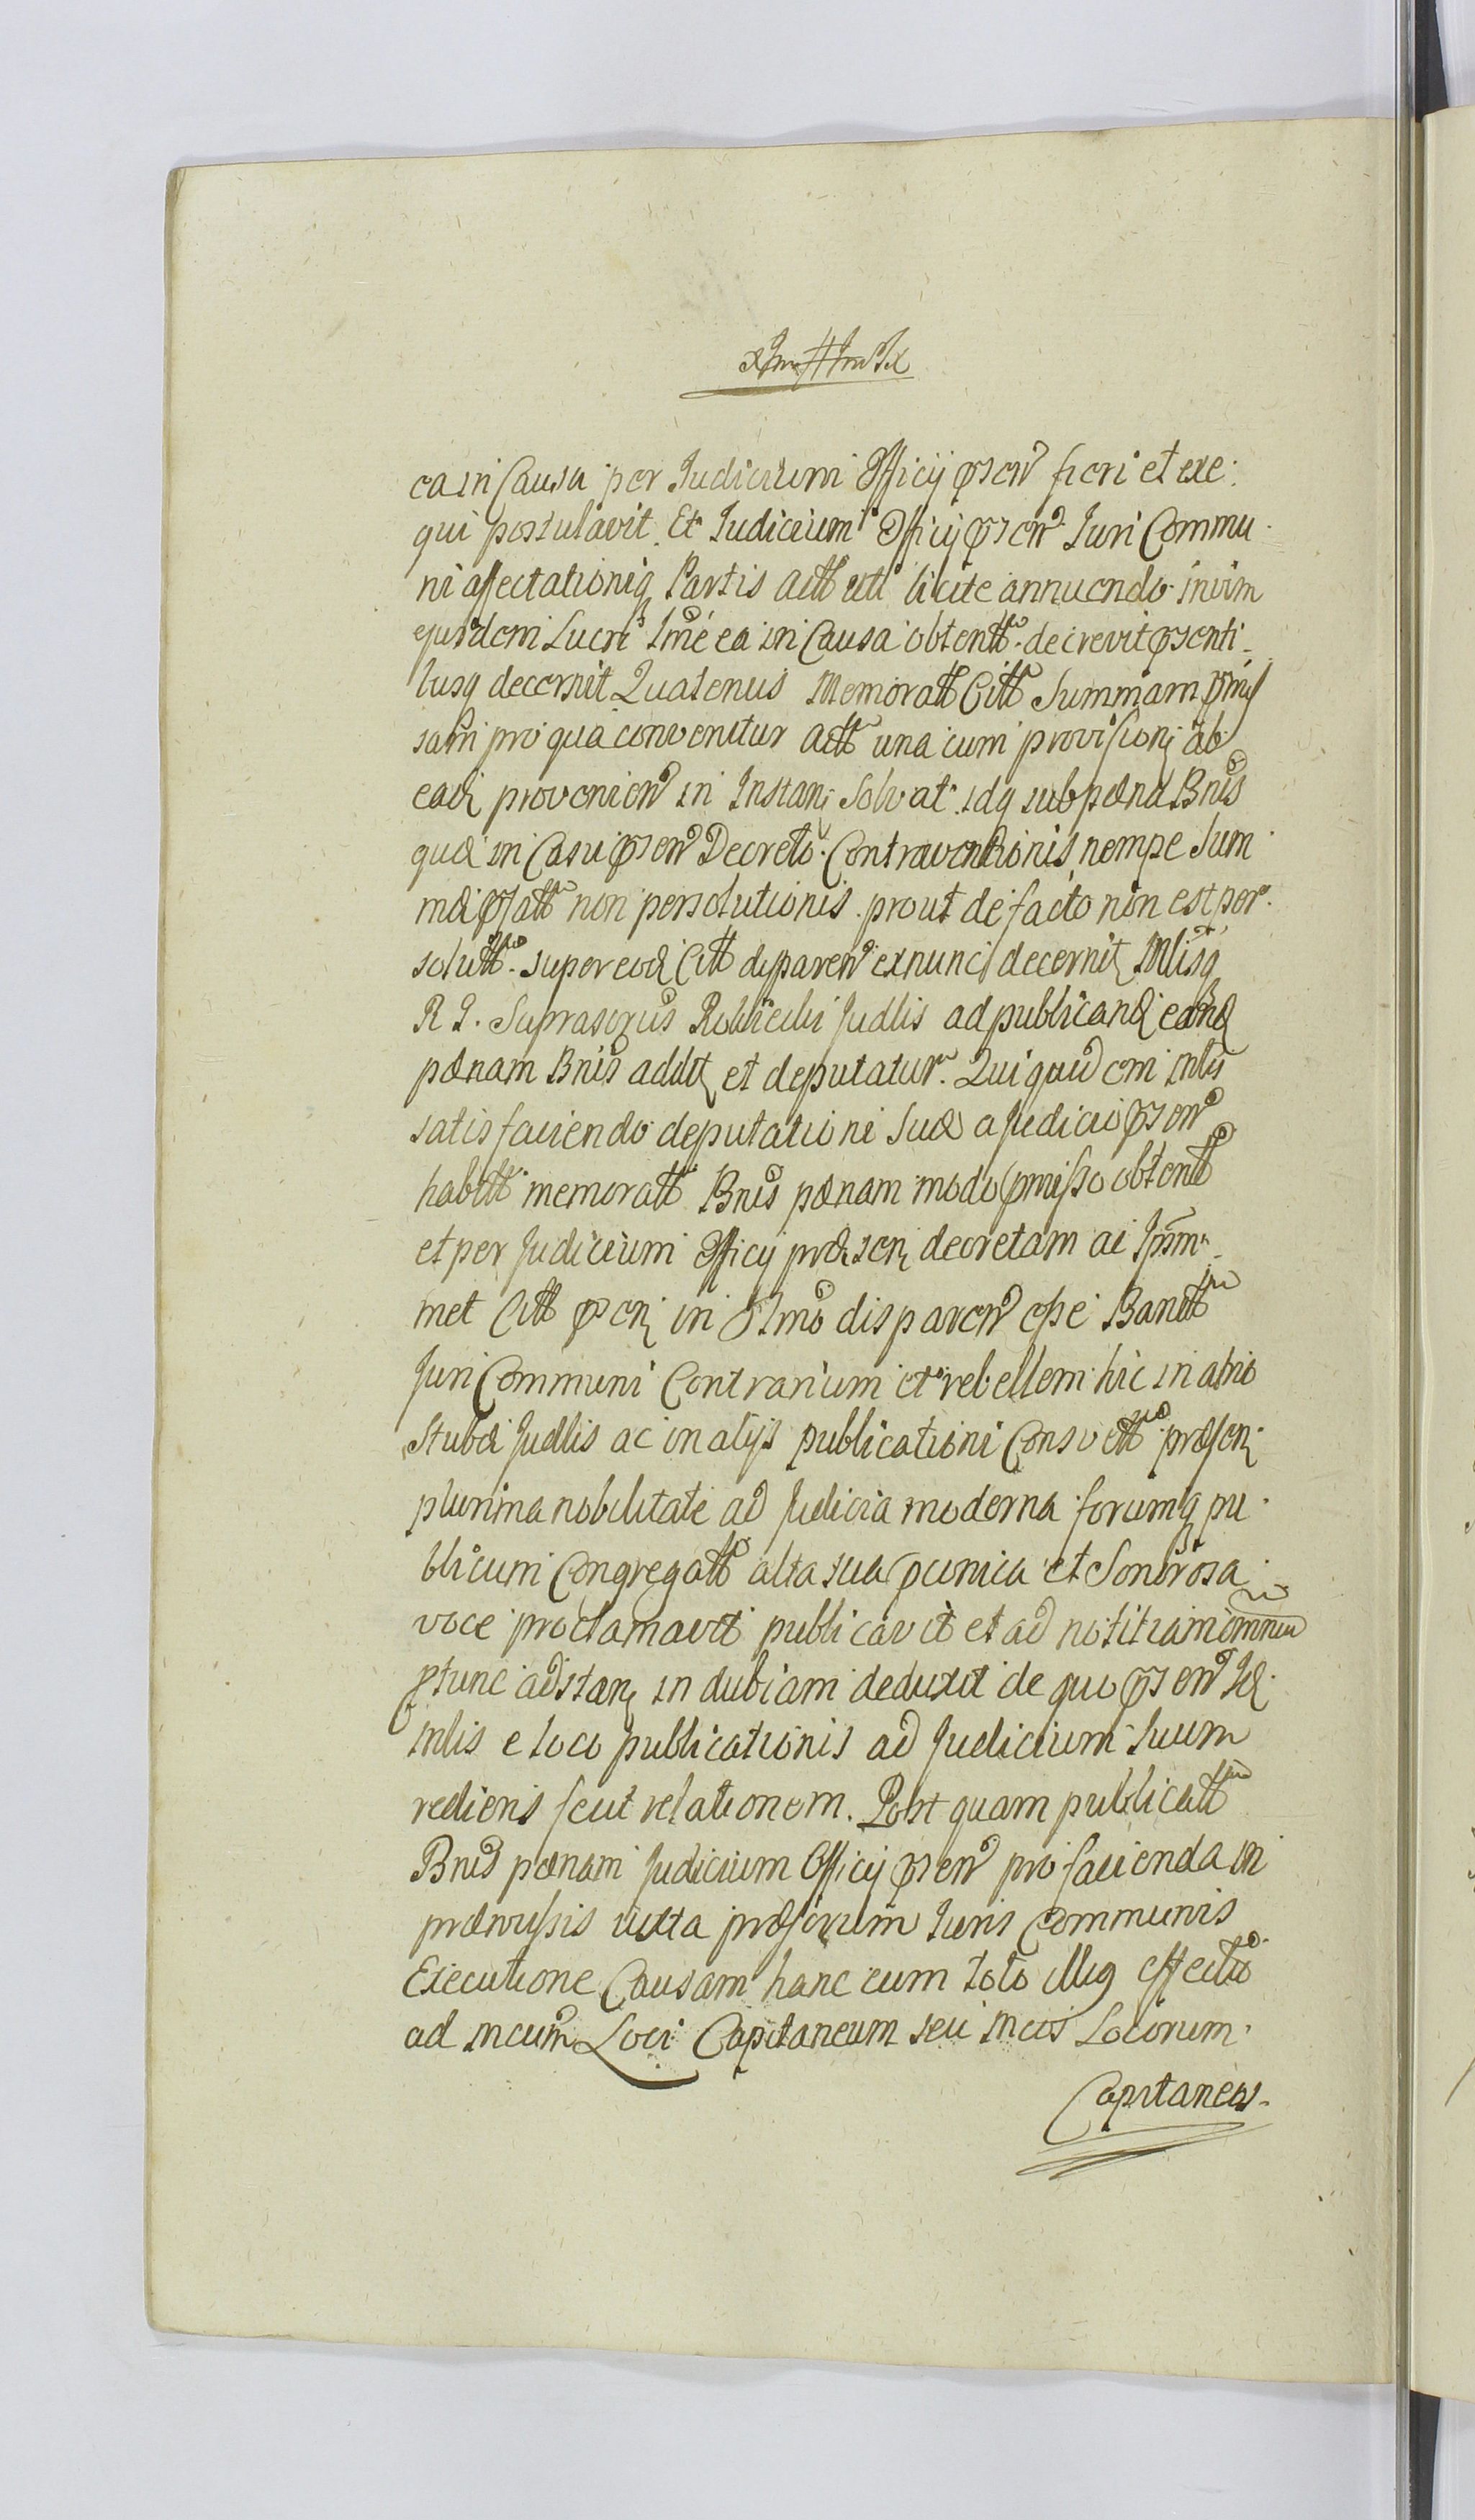 ea in Causa per Judicium Officij psen fieri et exe:
qui postulavit. Et Judicium Officij psen Juri Commu
ni affectationiq Partis Actt uti licite annuendo invim
ejusdem Lucri Imé ea in Causa obtentt. decrevit psenti
busq decernit Quatenus Memoratt Citt Summam pmis
sam pro qua convenitur Actt una cum provisione ab
ead provenien in Instan Solvat. idq sub pœna Bnis
quæ in Casu psen Decreto Contraventionis, nempe Sum
mæ psatt non persolutionis. prout de facto non est per
solutt. super eod Citt disparen ex nunc decernit, Mlisq
R J. Suprascrus Judlis ad publicand eand
pœnam Bnis addit et deputatur. Qui quid em Mlis
satisfaciendo deputationi Suæ a Judicio psen
habitt memoratt Bnis pœnam modo pmisso obtentt
et per Judicium Officij præsen decretam ac Ipsm
met Citt psen in Tmo disparen esse Banitt
Juri Communi Contrarium et rebellem hic in atrio
Stubæ Judlis ac in alijs publicationi Consvett præsen
plurima nobilitate ad Judicia moderna forumq pu
blicum Congregatt alta sua pcunica et Sonorosa
voce proclamavit publicavit et ad notitiam omniu
ptunc adstan indubiam deduxit de quo psen Id
Mlis e loco publicationis ad Judicium Suum
rediens fecit relationem. Post quam publicatt
Bnis pœnam Judicium Officij psen pro facienda in
præmissis iuxta præscrum Juris Communis
Executione Causam hanc cum toto illig effectu
ad incum Loci Capitaneum seu incos Locorum
Capitaneos